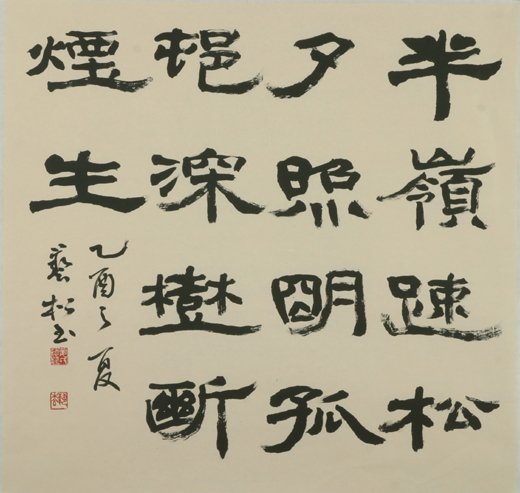 半嶺踈松
夕照朙孤
邨深樹斷
煙生
乙酉之夏
松书